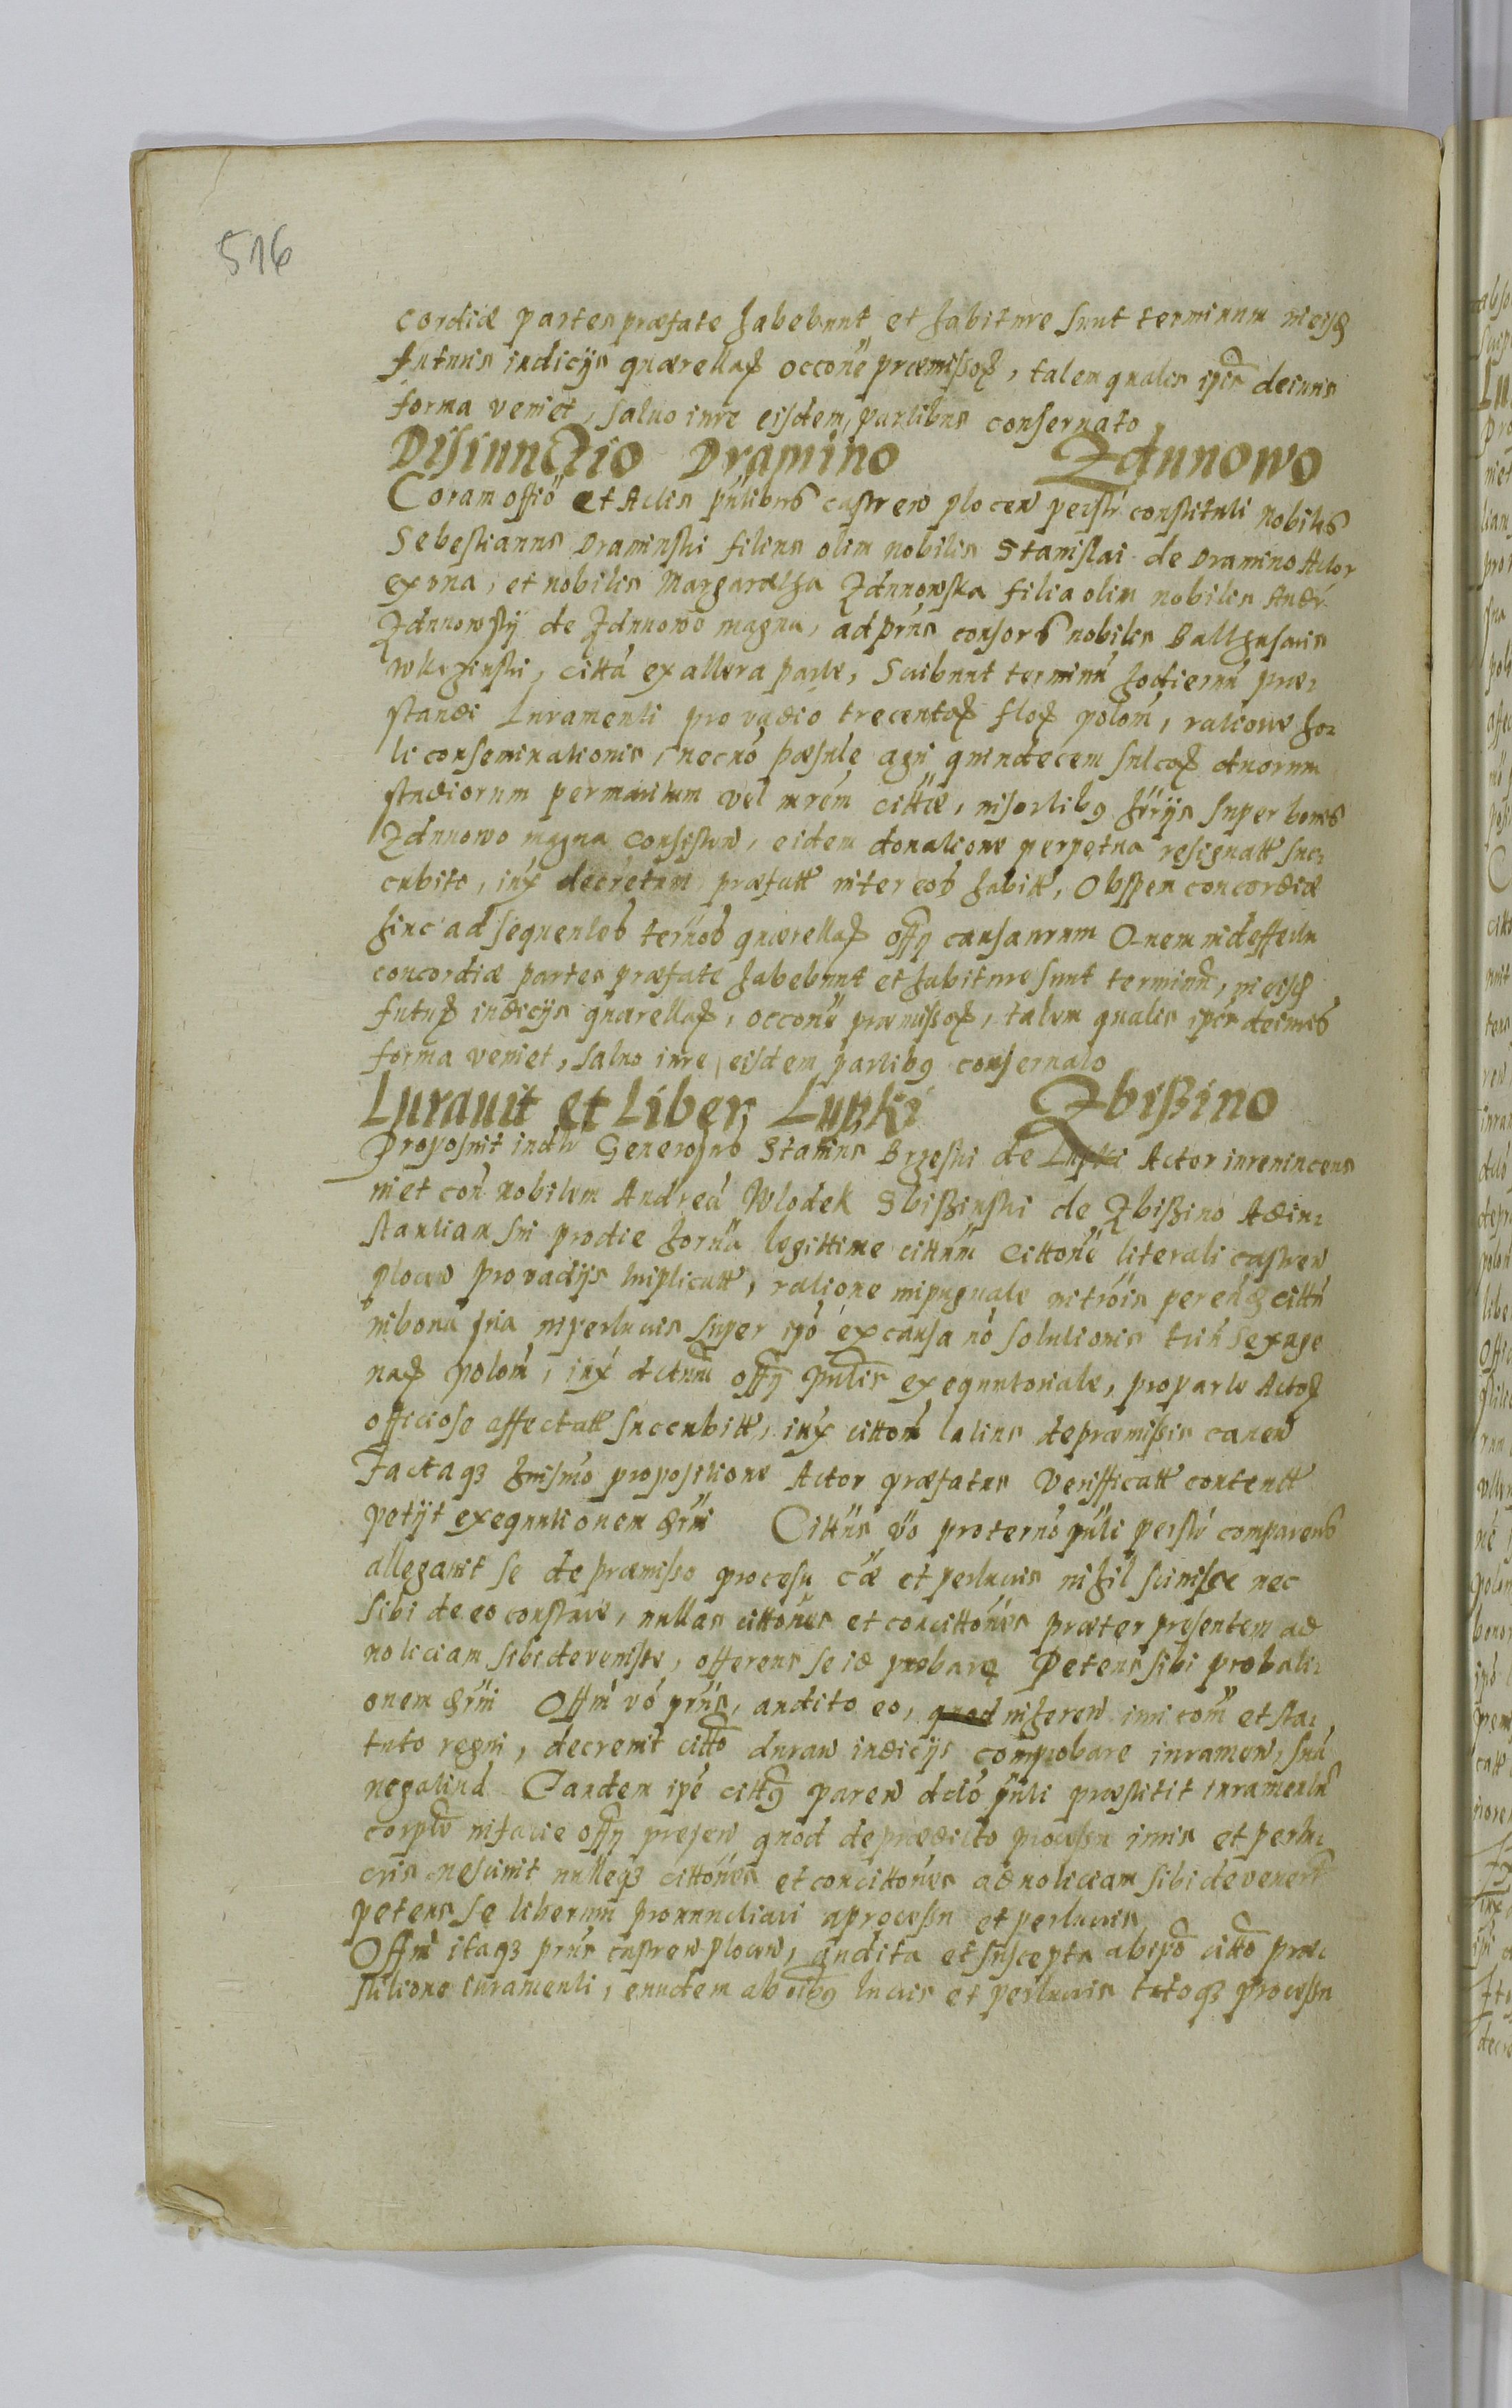 516
cordiæ partes præfate habebunt et habiture sunt terminum in eisd
futuris iudicijs quærellaꝝ occone præmissoꝝ, talem qualis ipis de iuris
forma veniet, saluo iure eisdem partibus conseruato
Disiunctio Dramino Zdunowo
Coram offio et Actis pñtibus castren plocen perstr constituti Nobilis
Sebestianus Draminski filius olim nobilis Stanislai de Dramino Actor
ex vna, et nobilis Margaretha Zdunowska filia olim nobilis Andr
Zdunowsky de Zdunowo magna, ad pñs consors nobilis Balthasaris
citta ex altera parte, Scribunt terminu hodiernu præ-
standi Iuramenti pro vadio trecentoꝝ floꝝ polon, ratione hor-
ti conseminationis, necno agri quindecem sulcoꝝ duorum
stadiorum per maritum vel mrem cittæ, in sortibꝰ hrrijs super bonis
Zdunowo magna consisten, eidem donatione perpetua resignatt suc-
cubito, iux decretum præfatt inter eos habitt, Ob spem concordiæ
hinc ad sequentes termos quærellaꝝ offy capturarum O-nem in deffectu
concordiæ partes præfate habebunt et habiture sunt terminu, in eisd
futuꝝ iudicijs quærellaꝝ, occone præmissoꝝ, talem qualis ipis de iuris
forma veniet, saluo iure eisdem partibꝰ conseruato
Iurauit et Liber Lupki Zbißino
Proposuit indu Generosus Stanius Brzeski de Lupki Actor iure uincens
in et con nobilem Andrea Wlodek Sbißinski de Zbißino Ad in-
stantiam sui pro die horna legittime cittum Cittone literali castren
plocen pro vadijs triplicatt, ratione in pugnate in trois per eund cittu
in bona sua in perlucris super ipo ex causa no solutionis triu sexage
naꝝ polon, iux dctum offy pñtis exequutoriale, pro parte Actoꝝ
officiose affectatt succubitt, iux citton latius de præmissis canen
Factaqꝫ huismo propositione Actor præfatus Verifficatt contentt
petijt exequutionem drni Cittus vo pro terno pñti perstr comparens
allegauit se de præmisso procesu cæ et perlucris nihil sciuisse nec
sibi de eo constare, nullas cittones et concittones præter presentem ad
noticiam sibi deuenisse, offerens se id probare Petens sibi probati-
onem drni Offm vo pñs, audito eo, quod inheren iuri com et sta-
tuto regni, decreuit citto duran iudicijs comprobare iuramen, suu
negatiuu Tandem ipe cittꝰ paren dcto pñti præstitit iuramentu
corple in facie offy presen quod de prædicto processu iuris et perlu-
cris nesciuit nulleqꝫ cittones et concittones ad noticiam sibi deuenert
petens se liberum pronunctiari a processu et perlucris
Offm itaqꝫ pñs castren plocen, audita et suscepta ab ipo citto præ-
stitione iuramenti, eundem ab oibꝰ lucris et perlucris totoqꝫ processu